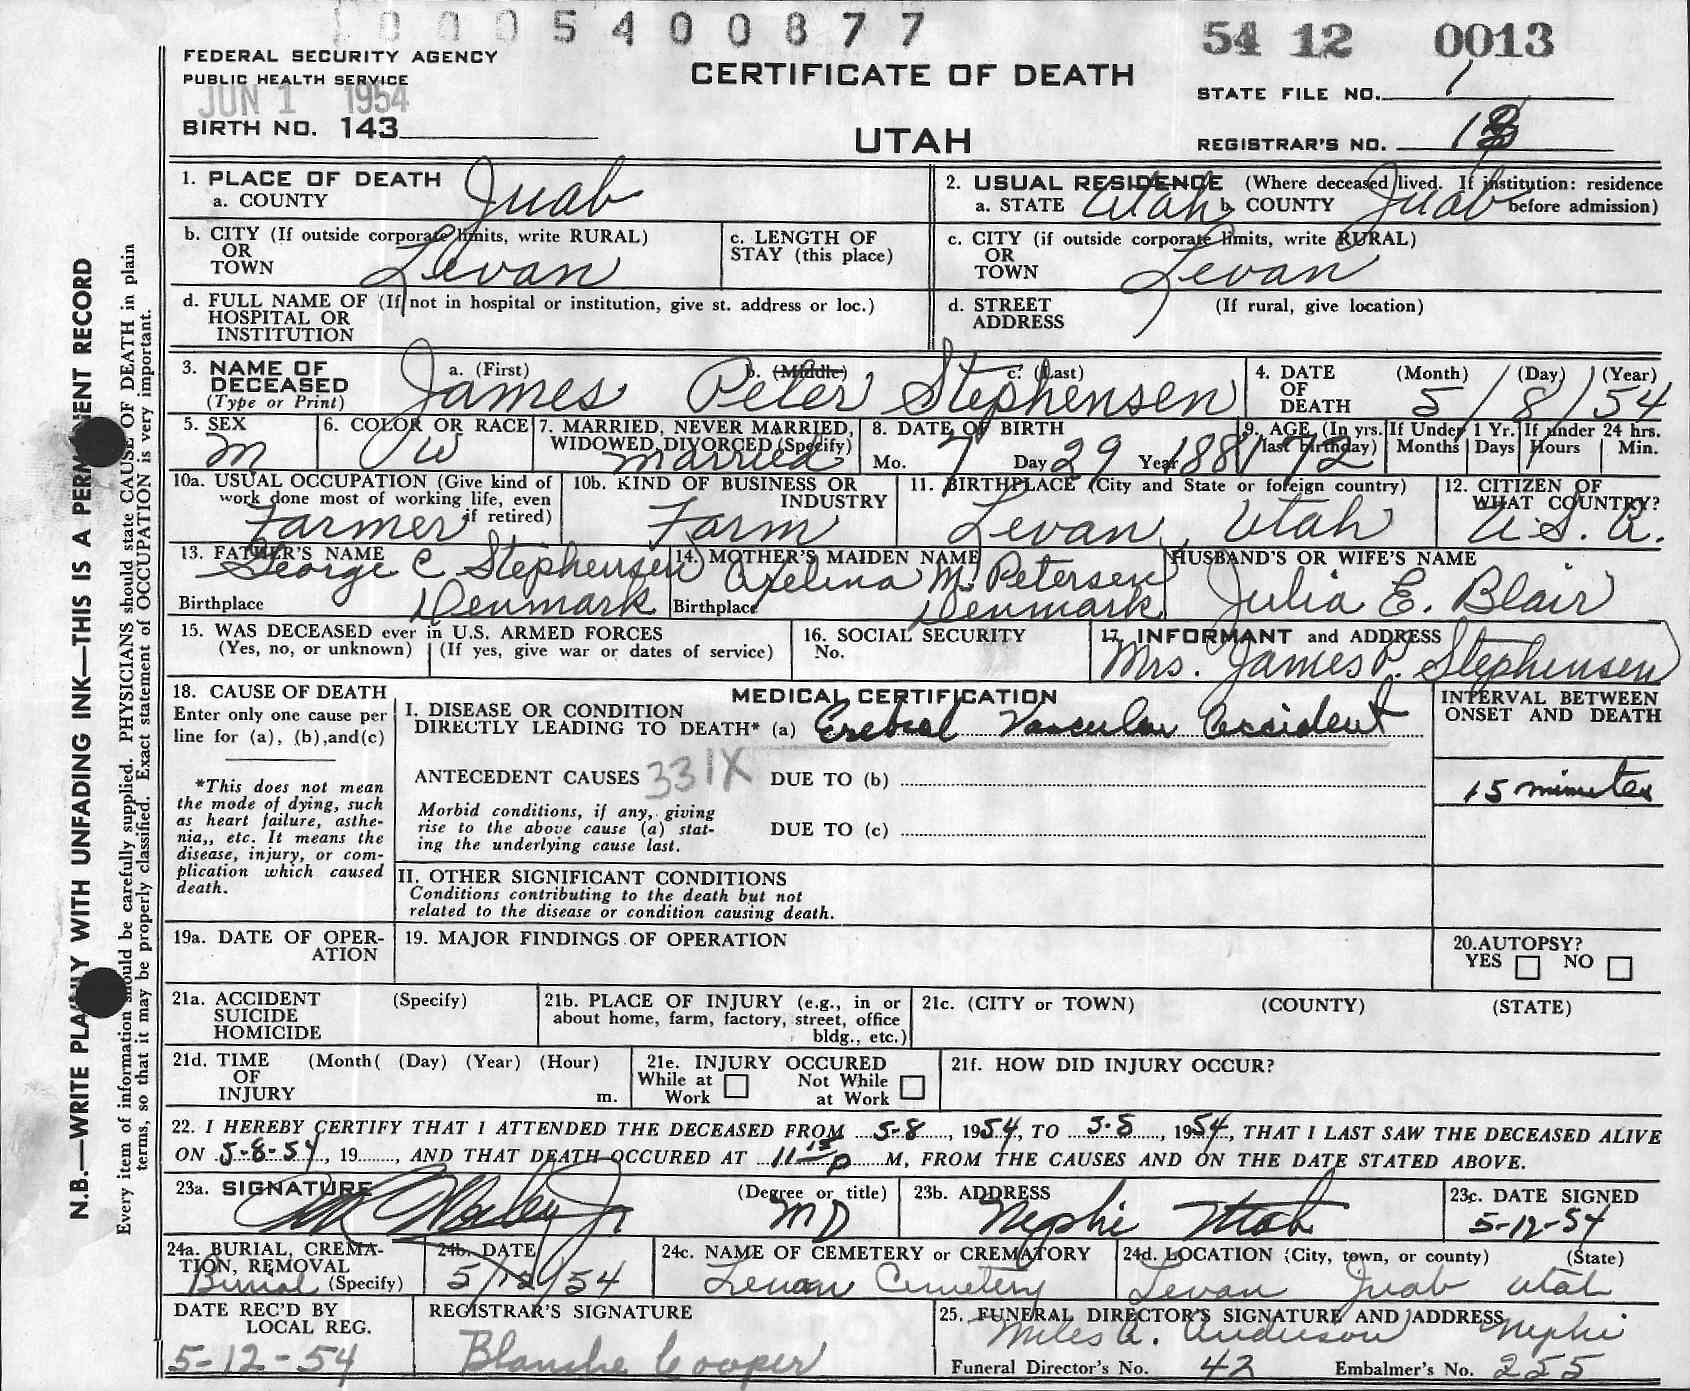 0005400877
54 12 0013
FEDERAL SECURITY AGENCY
PUBLIC HEALTH SERVICE
JUN 1 1954
BIRTH NO. 143
CERTIFICATE OF DEATH
UTAH
STATE FILE NO. 1
REGISTRAR'S NO. 13
N.B.—WRITE PLAINLY WITH UNFADING INK—THIS IS A PERMANENT RECORD
Every item of information should be carefully supplied. PHYSICIANS should state CAUSE OF DEATH in plain
terms, so that it may be properly classified. Exact statement of OCCUPATION is very important.
1. PLACE OF DEATH
a. COUNTY Juab
2. USUAL RESIDENCE (Where deceased lived. If institution: residence
a. STATE Utah b. COUNTY Juab before admission)
b. CITY (If outside corporate limits, write RURAL)
OR
TOWN Levan
c. LENGTH OF
STAY (this place)
c. CITY (if outside corporate limits, write RURAL)
OR
TOWN Levan
d. FULL NAME OF (If not in hospital or institution, give st. address or loc.)
HOSPITAL OR
INSTITUTION
d. STREET (If rural, give location)
ADDRESS
3. NAME OF
DECEASED
(Type or Print)
a. (First) b. (Middle) c. (Last)
James Peter Stephensen
4. DATE (Month) (Day) (Year)
OF
DEATH 5/8/54
5. SEX
M
6. COLOR OR RACE
W
7. MARRIED, NEVER MARRIED,
WIDOWED, DIVORCED (Specify)
Married
8. DATE OF BIRTH
Mo. 7 Day 29 Year 1881
9. AGE (In yrs.
last birthday)
72
If Under 1 Yr.
Months Days
If under 24 hrs.
Hours Min.
10a. USUAL OCCUPATION (Give kind of
work done most of working life, even
if retired)
Farmer
10b. KIND OF BUSINESS OR
INDUSTRY
Farm
11. BIRTHPLACE (City and State or foreign country)
Levan, Utah
12. CITIZEN OF
WHAT COUNTRY?
U.S.A.
13. FATHER'S NAME
George C Stephensen
Birthplace Denmark
14. MOTHER'S MAIDEN NAME
M. Petersen
Birthplace Denmark
HUSBAND'S OR WIFE'S NAME
Julia E. Blair
15. WAS DECEASED ever in U.S. ARMED FORCES
(Yes, no, or unknown) (If yes, give war or dates of service)
16. SOCIAL SECURITY
No.
17. INFORMANT and ADDRESS
Mrs. James P. Stephensen
18. CAUSE OF DEATH
Enter only one cause per
line for (a), (b),and(c)
*This does not mean
the mode of dying, such
as heart failure, asthe-
nia,, etc. It means the
disease, injury, or com-
plication which caused
death.
MEDICAL CERTIFICATION
I. DISEASE OR CONDITION
DIRECTLY LEADING TO DEATH* (a) Vascular Accident
ANTECEDENT CAUSES 331X DUE TO (b)
Morbid conditions, if any, giving
rise to the above cause (a) stat-
ing the underlying cause last.
DUE TO (c)
II. OTHER SIGNIFICANT CONDITIONS
Conditions contributing to the death but not
related to the disease or condition causing death.
INTERVAL BETWEEN
ONSET AND DEATH
15 minutes
19a. DATE OF OPER-
ATION
19. MAJOR FINDINGS OF OPERATION
20.AUTOPSY?
YES NO
21a. ACCIDENT (Specify)
SUICIDE
HOMICIDE
21b. PLACE OF INJURY (e.g., in or
about home, farm, factory, street, office
bldg., etc.)
21c. (CITY or TOWN) (COUNTY) (STATE)
21d. TIME (Month( (Day) (Year) (Hour)
OF
INJURY m.
21e. INJURY OCCURED
While at Not While
Work at Work
21f. HOW DID INJURY OCCUR?
22. I HEREBY CERTIFY THAT I ATTENDED THE DECEASED FROM 5-8, 1954, TO 5-8, 1954, THAT I LAST SAW THE DECEASED ALIVE
ON 5-8-54, 19......, AND THAT DEATH OCCURED AT 11 15 p M, FROM THE CAUSES AND ON THE DATE STATED ABOVE.
23a. SIGNATURE (Degree or title)
MD
23b. ADDRESS
Nephi Utah
23c. DATE SIGNED
5-12-54
24a. BURIAL, CREMA-
TION, REMOVAL
Burial (Specify)
24b. DATE
5/12/54
24c. NAME OF CEMETERY or CREMATORY
Levan Cemetery
24d. LOCATION (City, town, or county) (State)
Levan Juab Utah
DATE REC'D BY
LOCAL REG.
5-12-54
REGISTRAR'S SIGNATURE
Blanche Cooper
25. FUNERAL DIRECTOR'S SIGNATURE AND ADDRESS
Miles A. Anderson Nephi
Funeral Director's No. 42 Embalmer's No. 255